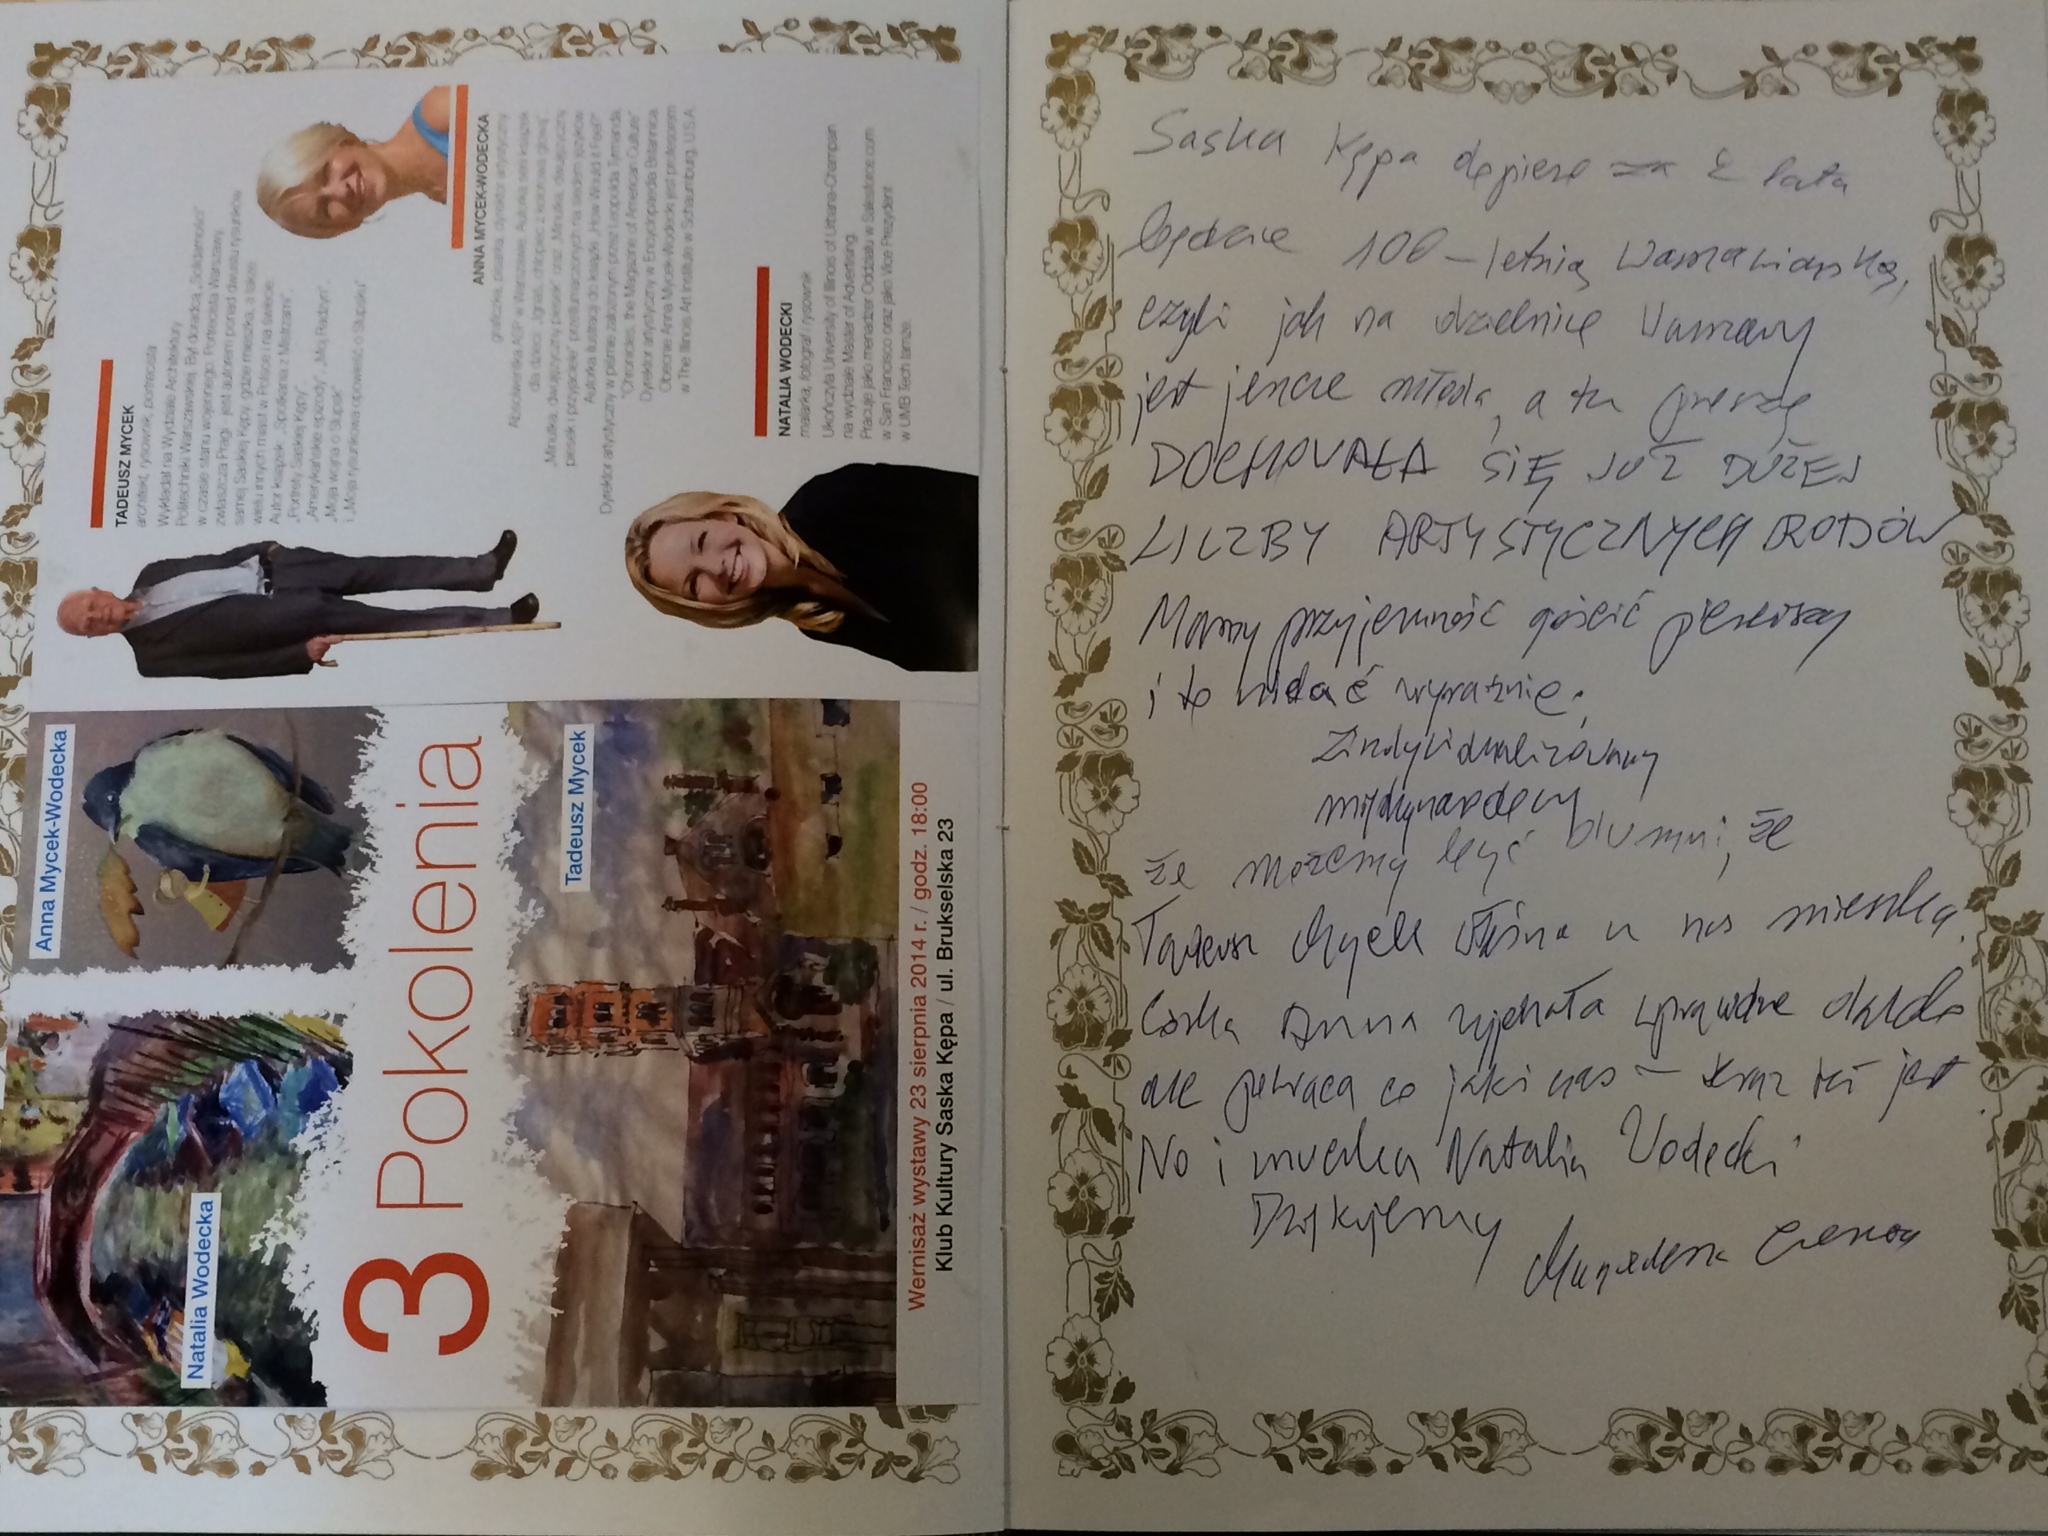 TADEUSZ MYCEK
architekt, rysownik, portrecista
Wykładał na Wydziale Architektury
Politechniki Warszawskiej. Był doradcą „Solidarności”
w czasie stanu wojennego. Portrecista Warszawy,
zwłaszcza Pragi - jest autorem ponad dwustu rysunków
samej Saskiej Kępy, gdzie mieszka, a także
wielu innych miast w Polsce i na świecie.
Autor książek: „Spotkania z Mistrzami”,
„Portrety Saskiej Kępy”,
„Amerykańskie epizody”, „Mój Radzyń”,
„Moja wojna o Słupsk”
i „Moja rysunkowa opowieść o Słupsku”
ANNA MYCEK-WODECKA
graficzka, pisarka, dyrektor artystyczny
Absolwentka ASP w Warszawie. Autorka serii książek
dla dzieci: „Ignaś, chłopiec z kolorową głową”,
„Minutka, dwujęzyczny piesek” oraz „Minutka, dwujęzyczny
piesek i przyjaciele” przetłumaczonych na siedem języków
Autorka ilustracji do książki „How Would it Feel?”
Dyrektor artystyczny w piśmie założonym przez Leopolda Tyrmanda,
“Chronicles, the Magazine of American Culture”
Dyrektor artystyczny w Encyclopaedia Britannica
Obecnie Anna Mycek-Wodecki jest profesorem
w The Illinois Art Institute w Schaumburg, U.S.A
NATALIA WODECKI
malarka, fotograf i rysownik
Ukończyła University of Illinois of Urbana-Champain
na wydziale Master of Advertising.
Pracuje jako menadżer Oddziału w Salesforce.com
w San Francisco oraz jako Vice Prezydent
w UMB Tech tamże.
Anna Mycek-Wodecka
Natalia Wodecka
3 Pokolenia
Tadeusz Mycek
Wernisaż wystawy 23 sierpnia 2014 r. / godz. 18:00
Klub Kultury Saska Kępa / ul. Brukselska 23
Saska Kępa dopiero za 2 lata
będzie 100-letnią Warszawianką,
czyli jak na dzielnicę Warszawy
jest jeszcze młoda, a tu proszę
DOCHOWAŁA SIĘ JUŻ DUŻEJ
LICZBY ARTYSTYCZNYCH RODÓW
Mamy przyjemność gościć pierwszy
i to widać wyraźnie.
Zindywidualizowany
międzynarodowy
że możemy być dumni, że
Tadeusz Mycek właśnie u nas mieszka.
Córka Anna wyjechała wprawdzie daleko
ale powraca co jakiś czas – teraz też jest.
No i wnuczka Natalia Wodecki
Dziękujemy